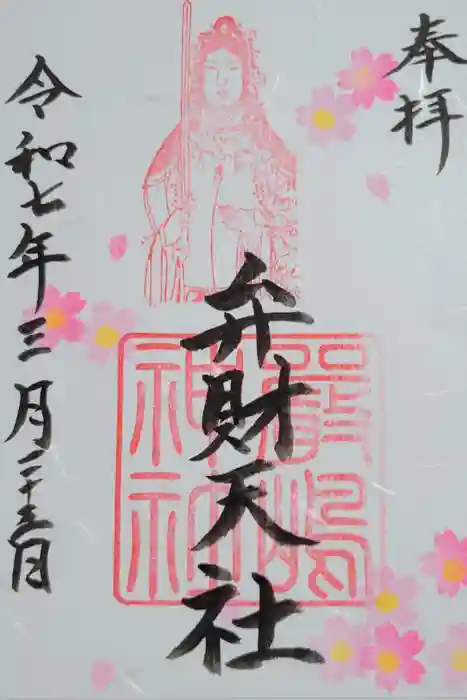 奉拝
弁財天社
厳嶋
神社
令和七年三月二十三日